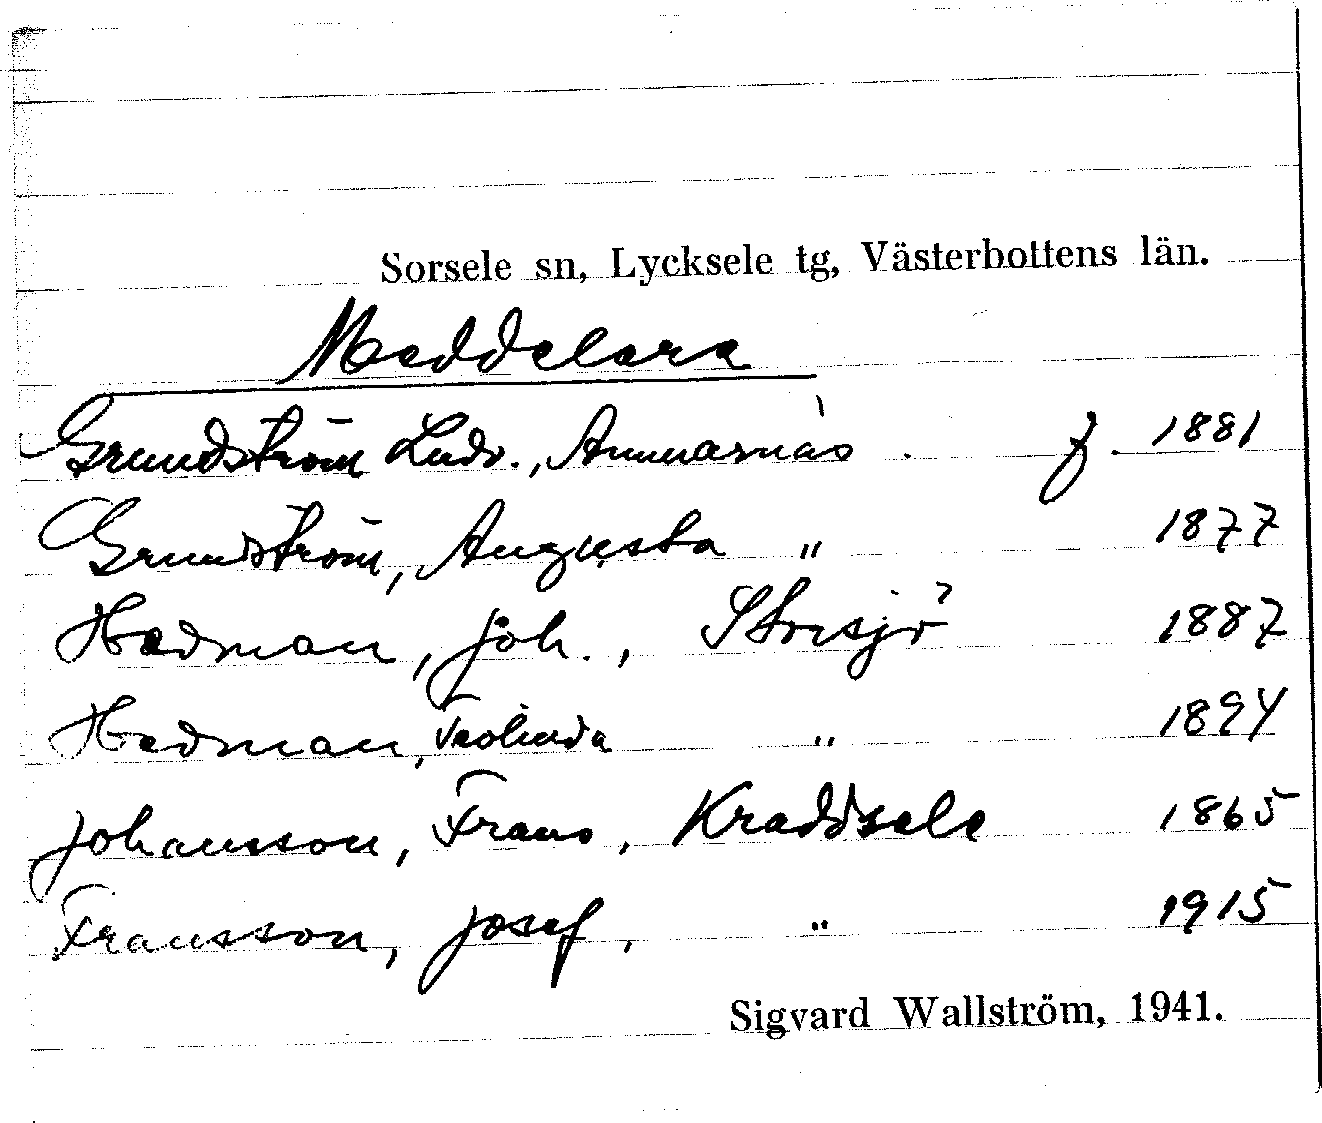 Sorsele sn, Lycksele tg, Västerbottens län.
Meddelare
Grundström Ludv., Ammarnäs . f. 1881
Grundström, Augusta " 1877
Hedman, Joh., Storsjö 1887
Hedman, Teolinda " 1894
Johansson, Frans, Kraddsele 1865
Fransson, Josef, " 1915
Sigvard Wallström, 1941.